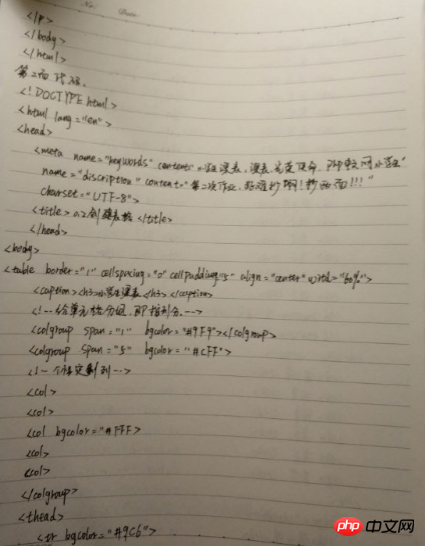 No. Date.
</p>
</body>
</html>
第二面代码.
<!DOCTYPE html>
<html lang="en">
<head>
<meta name="keywords" content="
name="discription" content="第二次作业,
charset="UTF-8">
<title> </title>
</head>
<body>
<table border="1" cellspacing="0" cellpadding=5 align="center" width="60%">
<caption><h3> </h3></caption>
<!-- 给单元格分组, -->
<colgroup span="1" bgcolor="#9F9"></colgroup>
<colgroup span="5" bgcolor="#CFF">
<!-- -->
<col>
<col>
<col bgcolor="#FFF">
<col>
<col>
</colgroup>
<thead>
<tr bgcolor="#9C6">
php 中文网